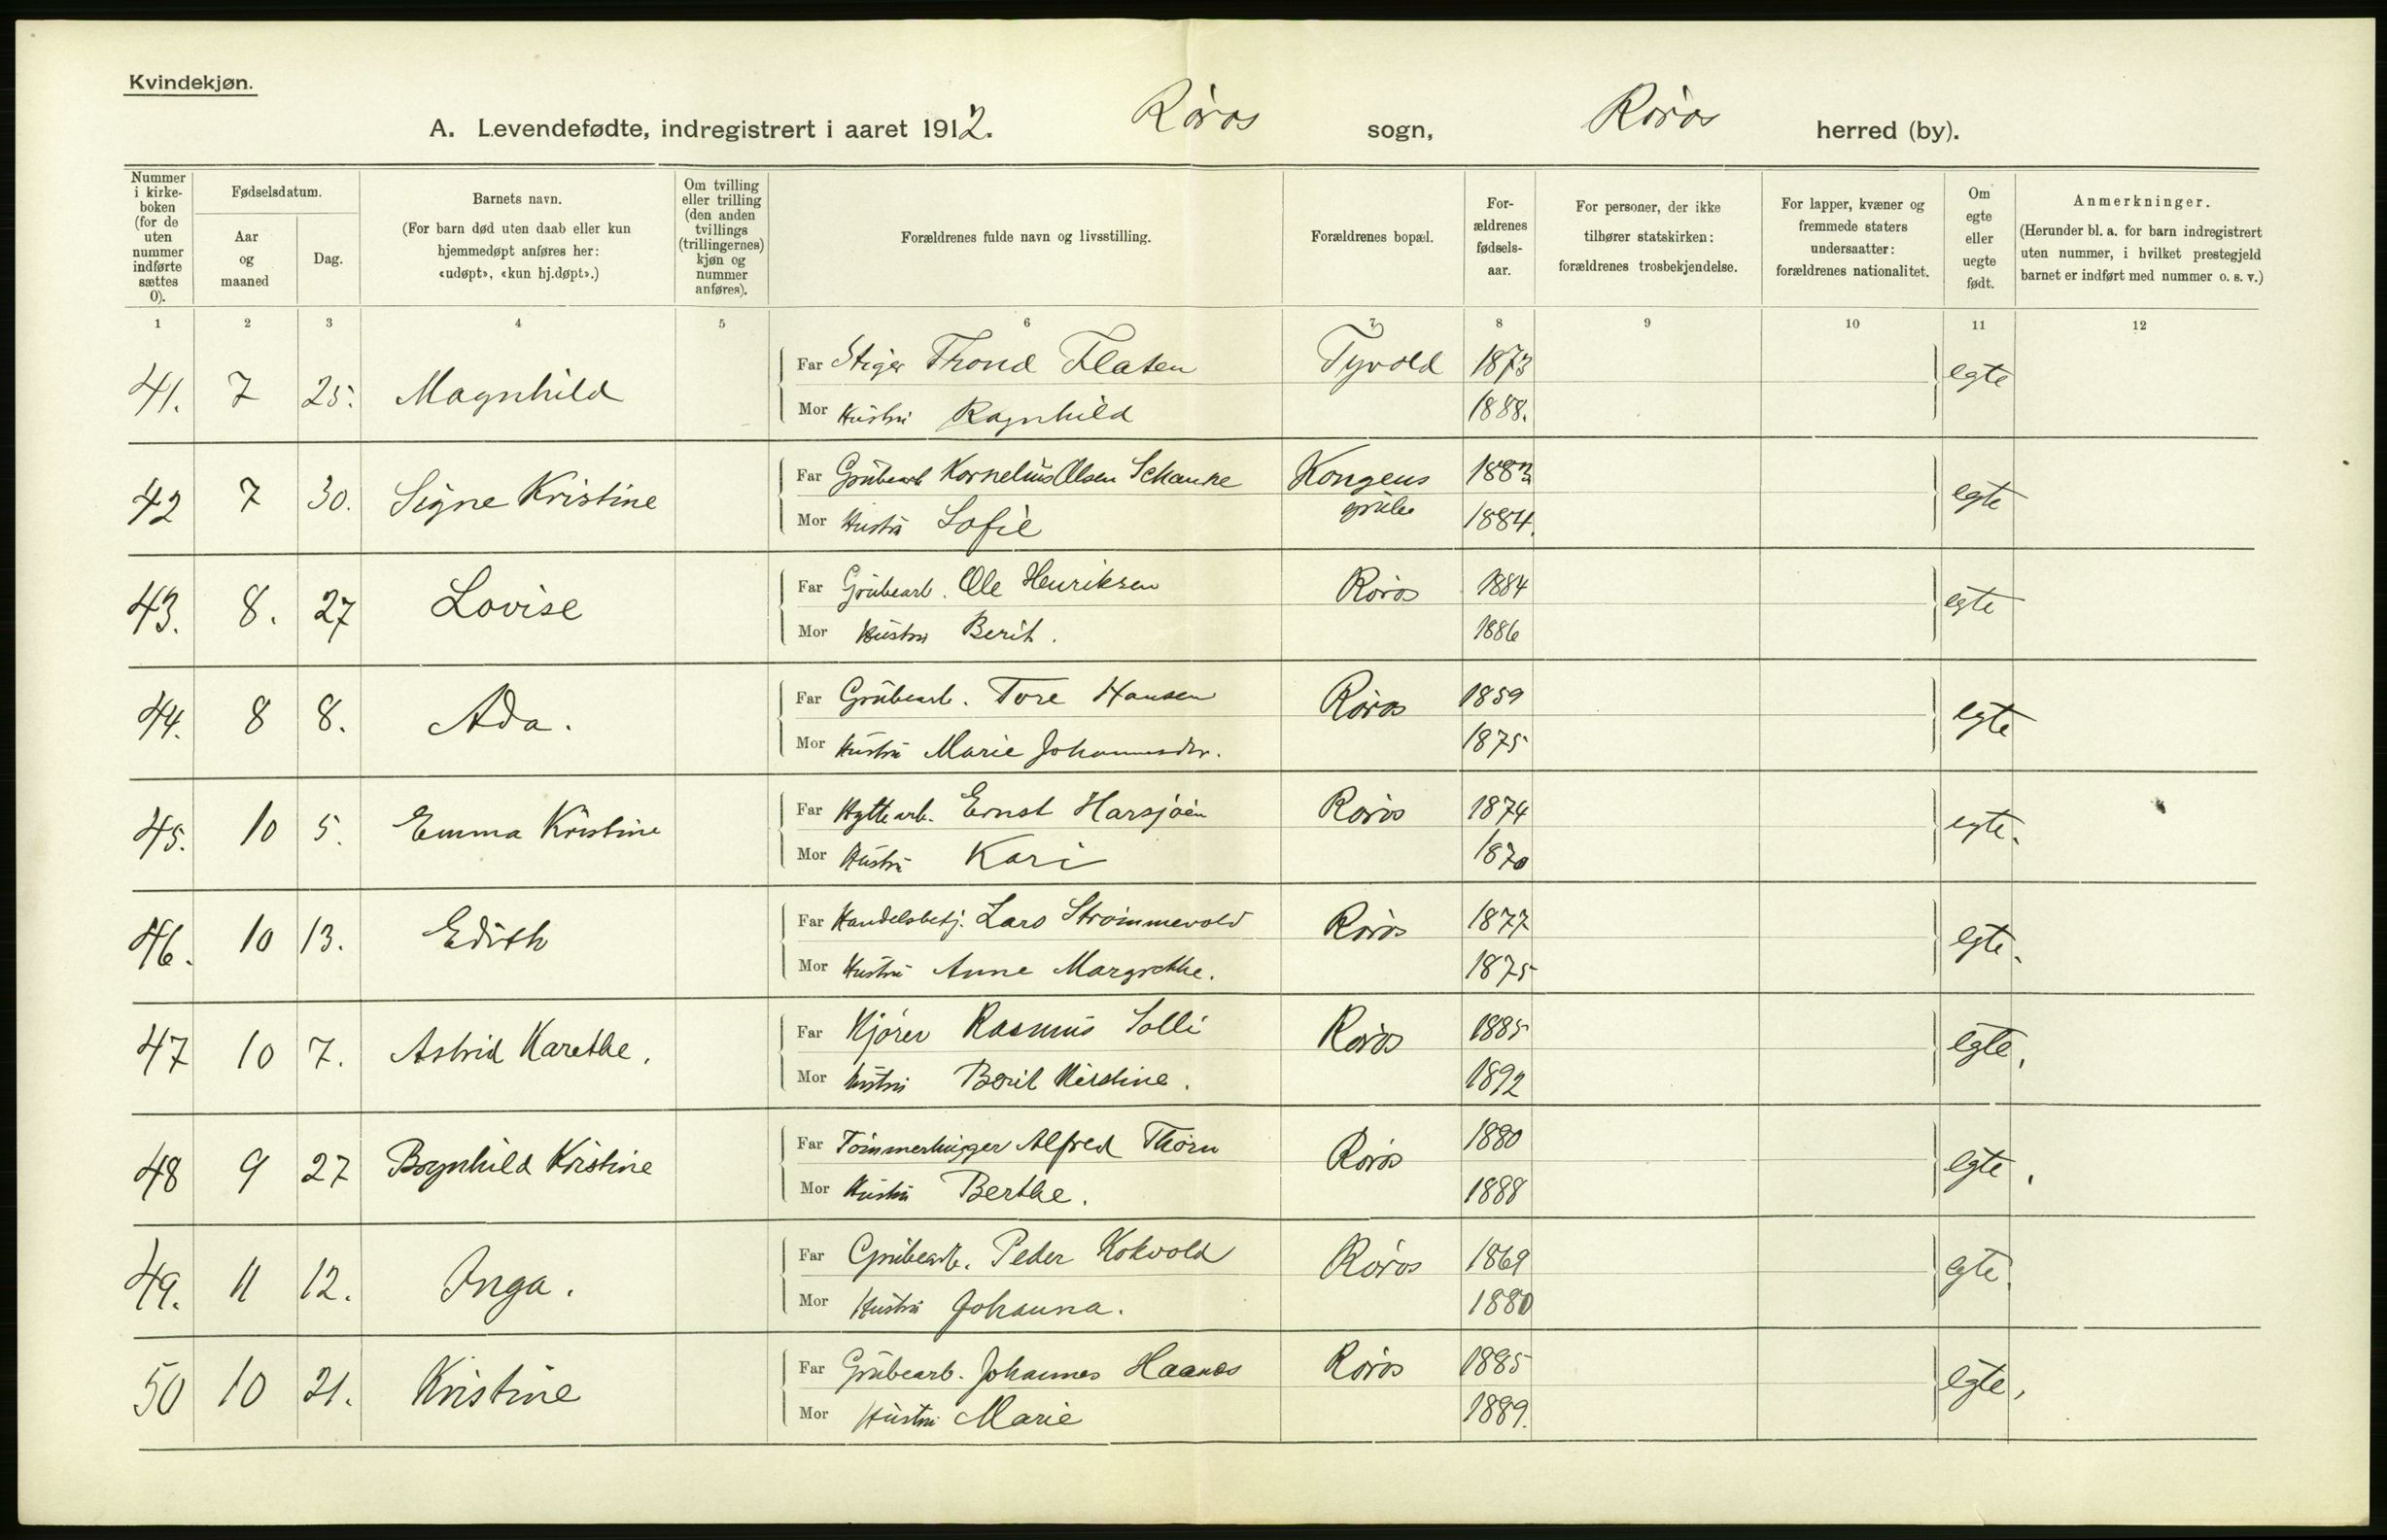 Kvindekjøn.
A. Levendefødte, indregistrert i aaret 1912. Røros sogn, Røros herred (by).
Nummer i kirke-boken (for de uten nummer indførte sættes 0).
Fødselsdatum.
Aar og maaned
Dag.
Barnets navn.
(For barn død uten daab eller kun hjemmedøpt anføres her: «udøpt», «kun hj.døpt».)
Om tvilling eller trilling (den anden tvillings (trillingernes) kjøn og nummer anføres).
Forældrenes fulde navn og livsstilling.
Forældrenes bopæl.
For-ældrenes fødsels-aar.
For personer, der ikke tilhører statskirken: forældrenes trosbekjendelse.
For lapper, kvæner og fremmede staters undersaatter: forældrenes nationalitet.
Om egte eller uegte født.
Anmerkninger.
(Herunder bl. a. for barn indregistrert uten nummer, i hvilket prestegjeld barnet er indført med nummer o. s. v.)
1 2 3 4 5 6 7 8 9 10 11 12
41. 7 25. Magnhild Far Stiger Trond Flaten Tyvold 1873 egte
Mor Hustru Ragnhild 1888.
42 7 30. Signe Kristine Far Grubearb Kornelius Olsen Schanke Kongens grube 1883 egte
Mor Hustru Sofie 1884.
43. 8. 27 Lovise Far Grubearb. Ole Henriksen Røros 1884 egte
Mor Hustru Berit. 1886
44. 8 8. Ada. Far Grubearb. Tore Hansen Røros 1859 egte
Mor Hustru Marie Johannesdtr. 1875
45. 10 5. Emma Kristine Far Hyttearb. Ernst Harsjøen Røros 1874 egte.
Mor Hustru Kari 1870
46. 10 13. Edith Far Handelsbetj. Lars Strømmevold Røros 1877 egte.
Mor Hustru Anne Margrethe. 1875
47 10 7. Astrid Karethe. Far Kjører Rasmus Solli Røros 1885 egte.
Mor Hustru Berit Kirstine. 1892
48 9 27 Borgnhild Kristine Far Tømmerhugger Alfred Thorn Røros 1880 egte.
Mor Hustru Berthe. 1888
49. 11 12. Inga. Far Grubearb. Peder Kokvold Røros 1869 egte.
Mor Hustru Johanna. 1880
50 10 21. Kristine Far Grubearb. Johannes Haanes Røros 1885 egte.
Mor Hustru Marie 1889.